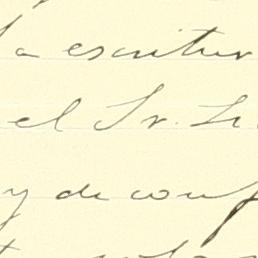 la escritur
el Sr. Li
y de conf